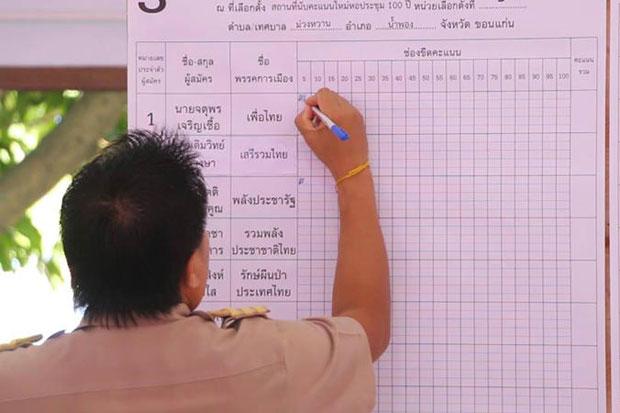 ณ ที่เลือกตั้ง สถานที่นับคะแนนใหม่หอประชุม 100 ปี หน่วยเลือกตั้งที่
ตำบล/เทศบาล ม่วงหวาน อำเภอ น้ำพอง จังหวัด ขอนแก่น
หมายเลข
ประจำตัว
ผู้สมัคร
ชื่อ-สกุล
ผู้สมัคร
ชื่อ
พรรคการเมือง
ช่องขีดคะแนน
คะแนน
รวม
5 10 15 20 25 30 35 40 45 50 55 60 65 70 75 80 85 90 95 100
1
นายจตุพร
เจริญเชื้อ
เพื่อไทย
เสรีรวมไทย
พลังประชารัฐ
รวมพลัง
ประชาชาติไทย
รักษ์ผืนป่า
ประเทศไทย